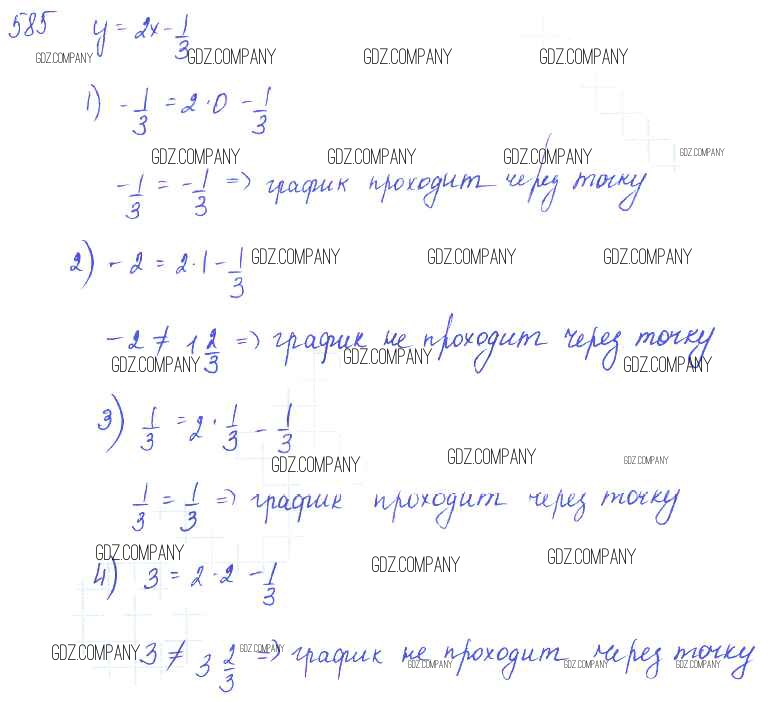 585 y = 2x - 1/3
GDZ.COMPANY GDZ.COMPANY GDZ.COMPANY GDZ.COMPANY
1) - 1/3 = 2·0 - 1/3
GDZ.COMPANY GDZ.COMPANY GDZ.COMPANY GDZ.COMPANY
- 1/3 = - 1/3 => график проходит через точку
2) - 2 = 2·1 - 1/3 GDZ.COMPANY GDZ.COMPANY GDZ.COMPANY
- 2 ≠ 1 2/3 => график не проходит через точку
GDZ.COMPANY GDZ.COMPANY GDZ.COMPANY
3) 1/3 = 2 · 1/3 - 1/3
GDZ.COMPANY GDZ.COMPANY GDZ.COMPANY
1/3 = 1/3 => график проходит через точку
GDZ.COMPANY GDZ.COMPANY GDZ.COMPANY
4) 3 = 2·2 - 1/3
GDZ.COMPANY 3 ≠ 3 2/3 => график не проходит через точку
GDZ.COMPANY GDZ.COMPANY GDZ.COMPANY GDZ.COMPANY